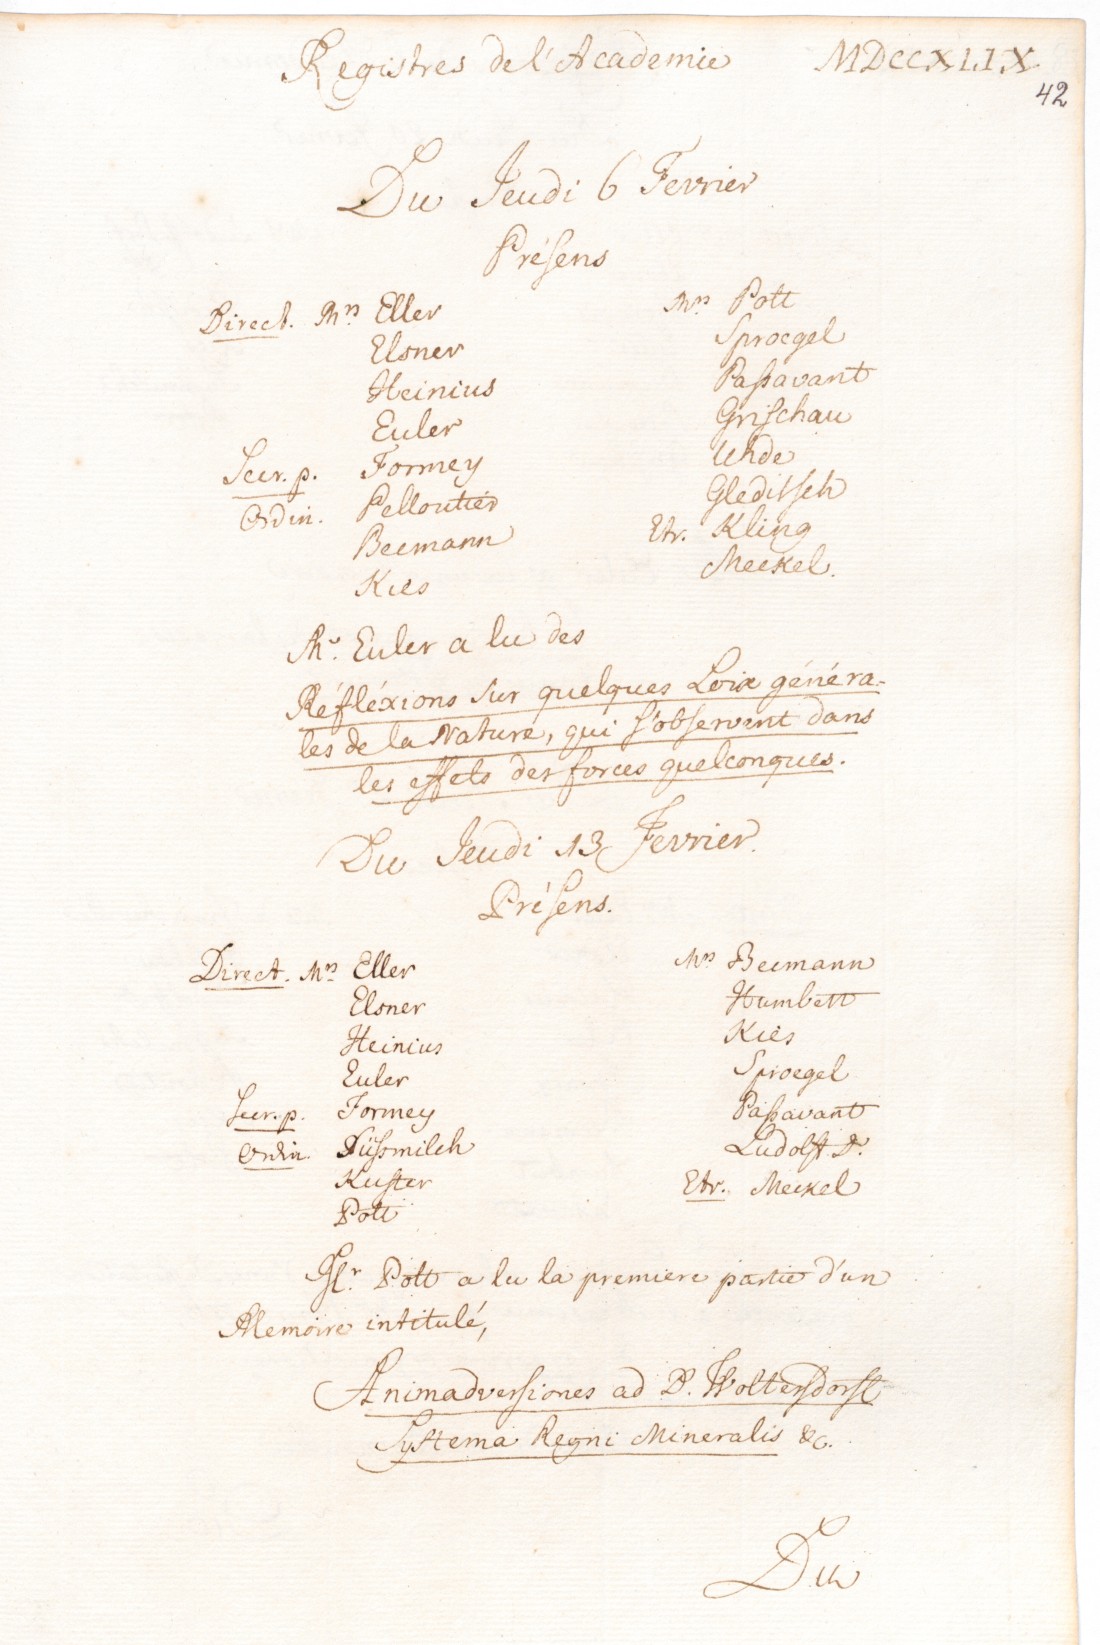 Registres de l'Academie MDCCXLIX
42
Du Jeudi 6 Fevrier
Présens
Direct. Mrs Eller
Elsner
Heinius
Euler
Secr. p. Formey
Ordin. Pelloutier
Becmann
Kies
Mrs Pott
Sproegel
Paßavant
Grischau
Uhde
Gleditsch
Etr. Kling
Meckel.
Mr. Euler a lu des
Réfléxions sur quelques Loix généra-
les de la Nature, qui s'observent dans
les effets des forces quelconques.
Du Jeudi 13 Fevrier.
Présens.
Direct. Mrs Eller
Elsner
Heinius
Euler
Secr. p. Formey
Ordin. Süssmilch
Kuster
Pott
Mrs Becmann
Humbert
Kies
Sproegel
Paßavant
Ludolff D.
Etr. Meckel
Mr. Pott a lu la premiere partie d'un
Memoire intitulé,
Animadversiones ad D. Woltersdorff
Systema Regni Mineralis &c.
Du